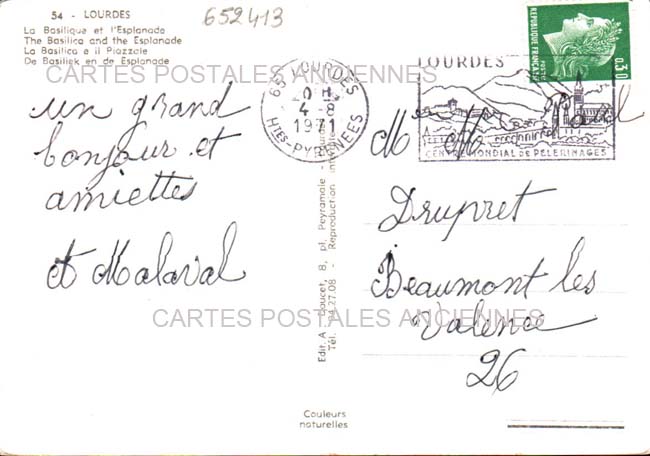 54 - LOURDES
La Basilique et l'Esplanade
The Basilica and the Esplanade
La Basilica e il Piazzale
De Basiliek en de Esplanade
652413
CARTES POSTALES ANCIENNES
65 LOURDES
4 - 8
1971
HTES-PYRENEES
LOURDES
CENTRE MONDIAL DE PELERINAGES
REPUBLIQUE FRANCAISE
POSTES
0,30
un grand
bonjour et
amiettes
et Malaval
Edit. A. Doucet, 8, pl. Peyramale -
Tél. 94.27.08 - Reproduction
M et Me Paul
Drupret
Beaumont les
Valence
26
CARTES POSTALES ANCIENNES
Couleurs
naturelles